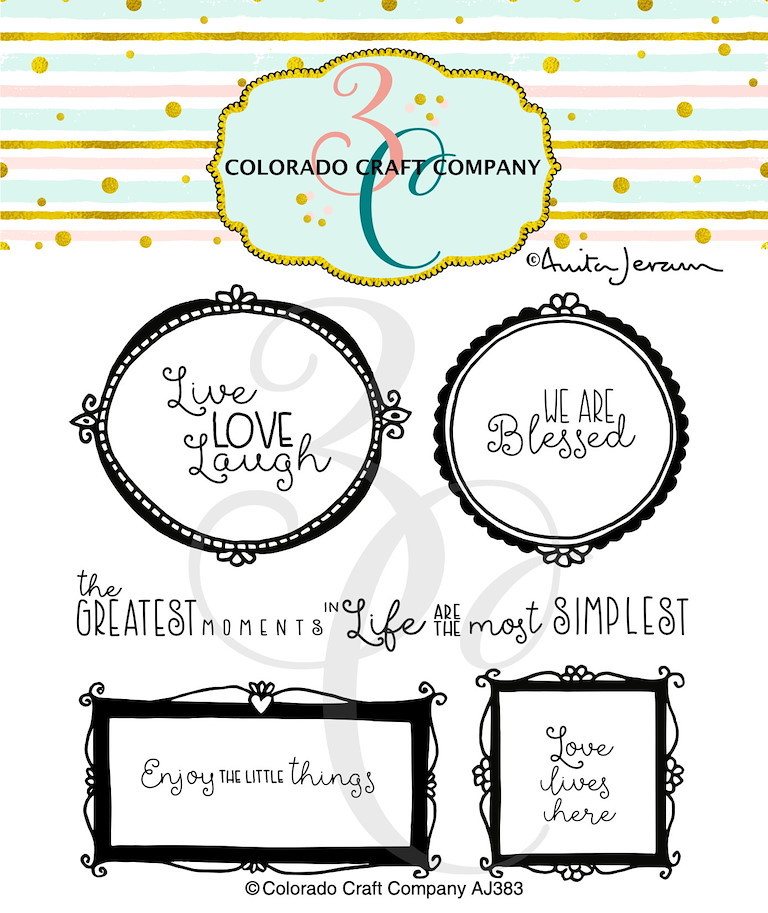 3C
COLORADO CRAFT COMPANY
©Anita Jeram
Live
LOVE
Laugh
WE ARE
Blessed
the
GREATEST MOMENTS IN Life ARE THE most SIMPLEST
Enjoy THE LITTLE things
Love
lives
here
©Colorado Craft Company AJ383